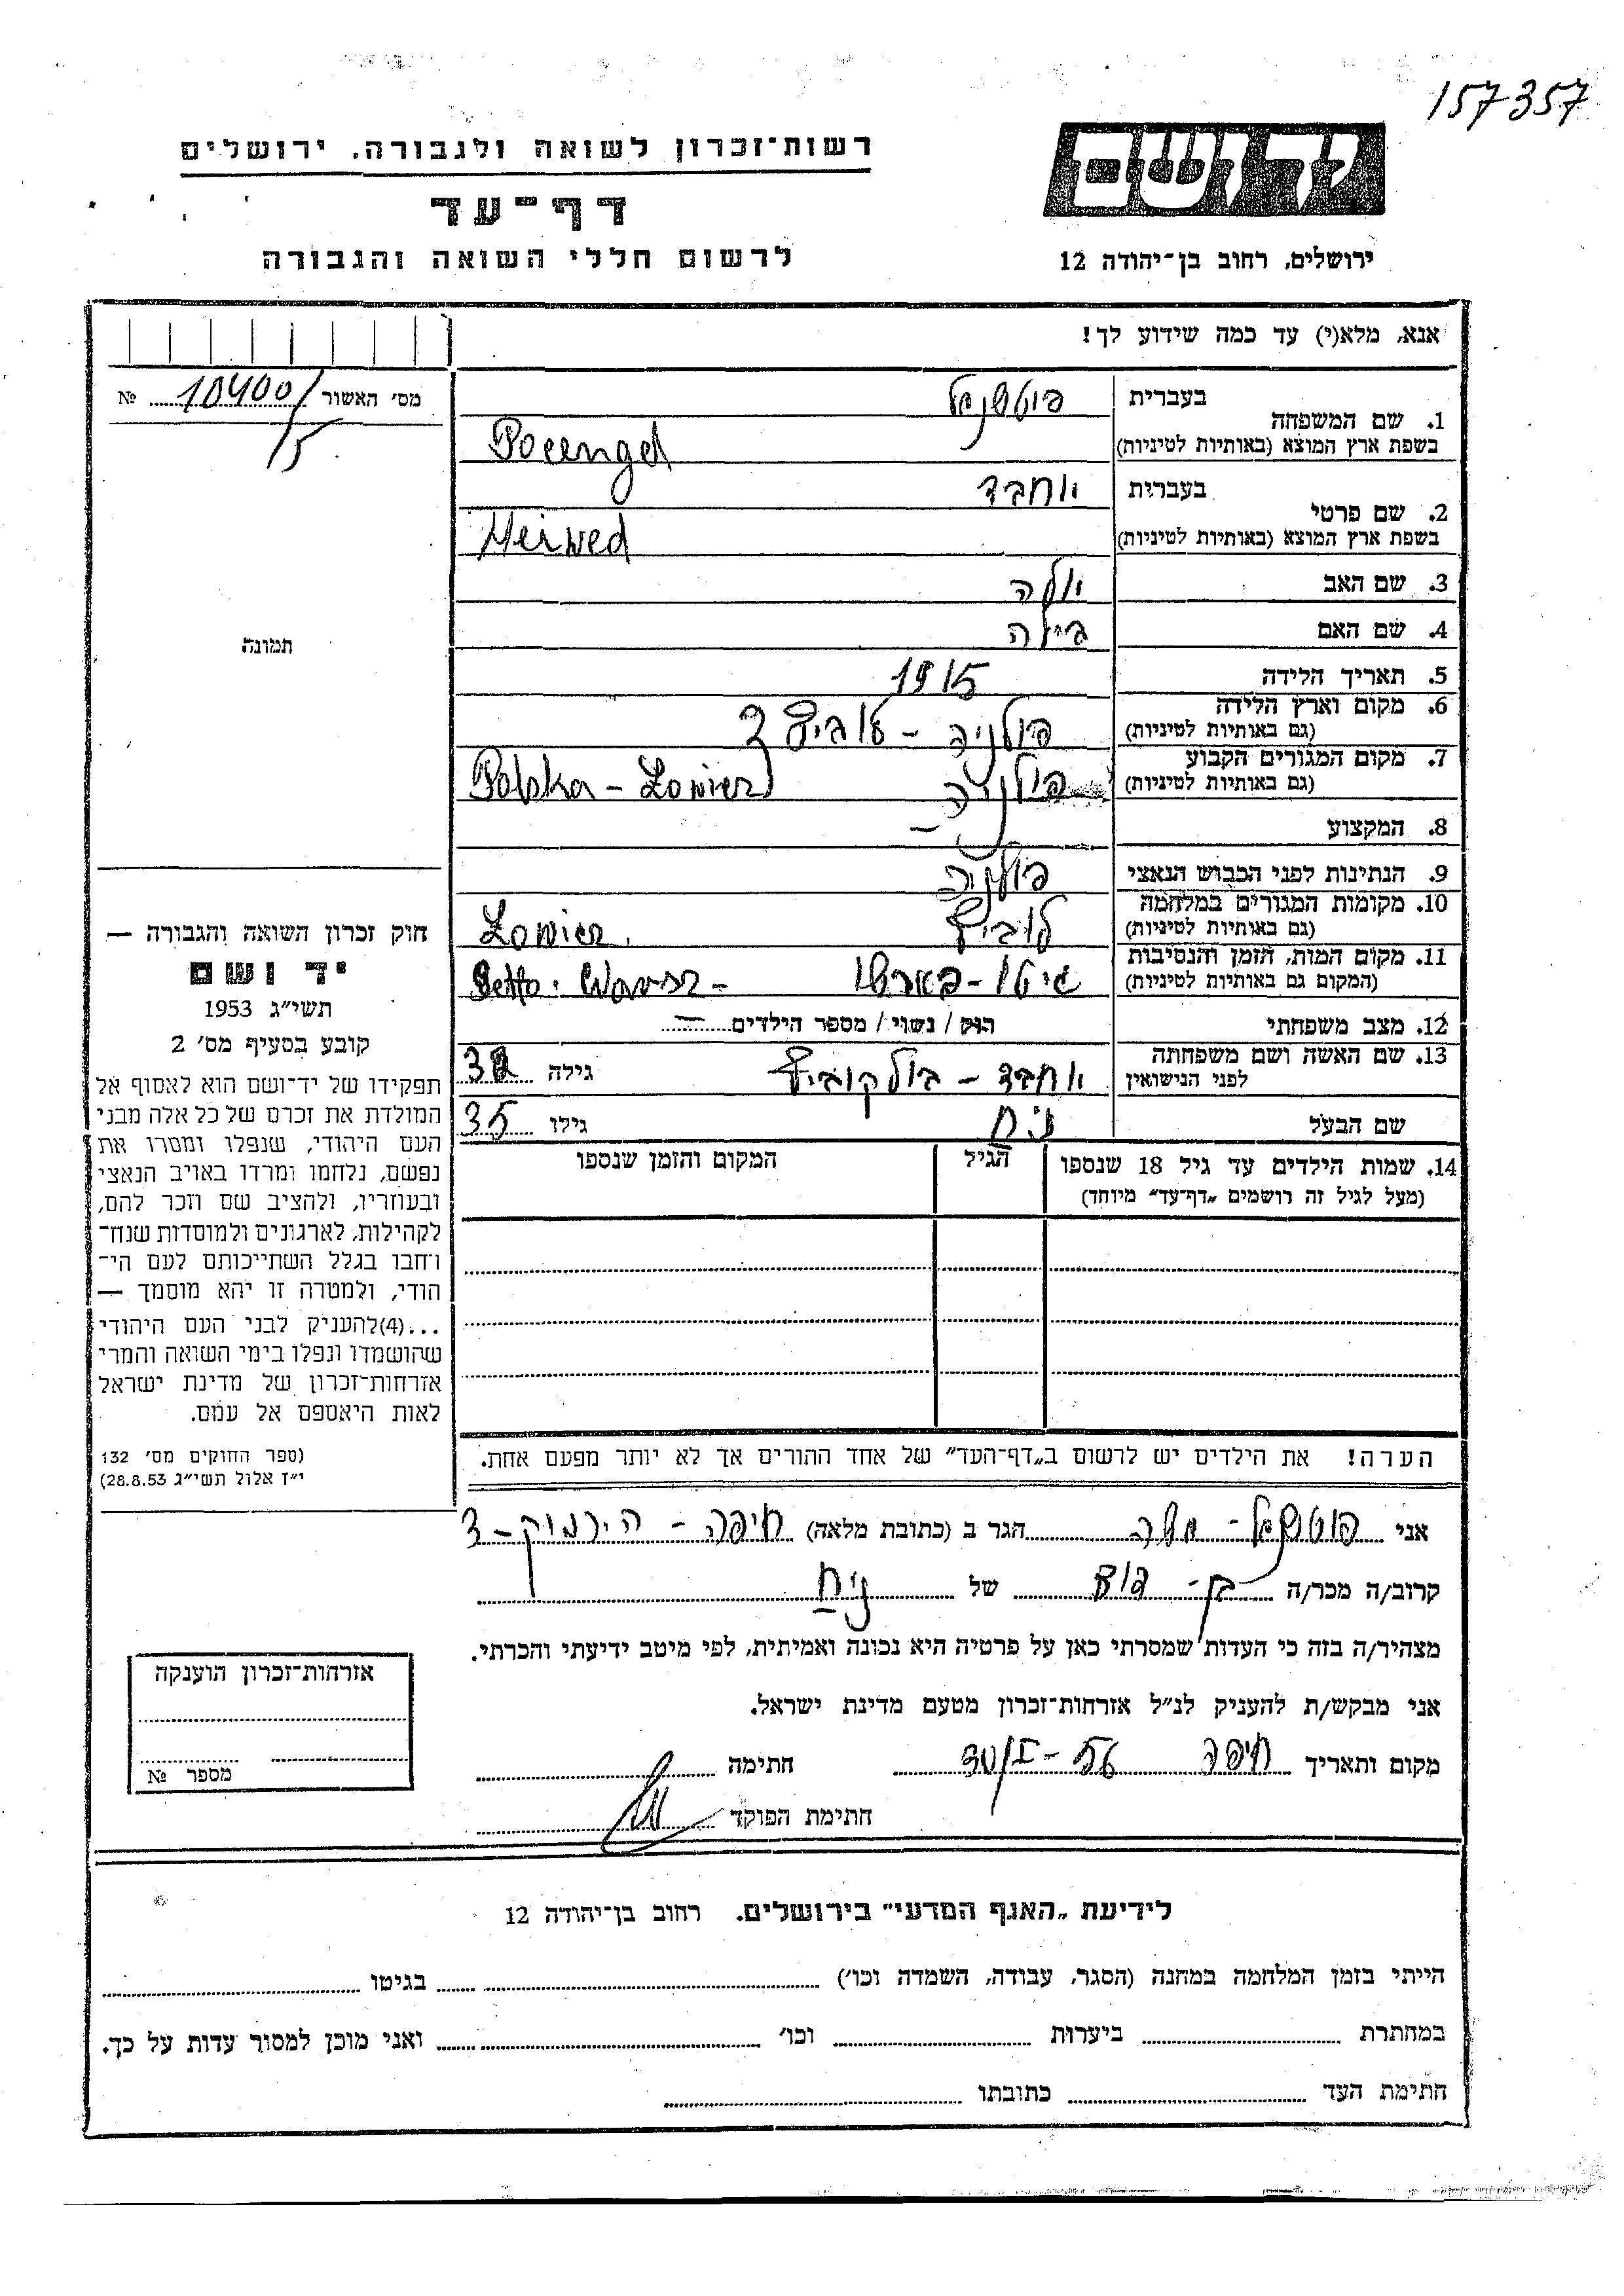 157357
רשות־זכרון לשואה ולגבורה, ירושלים
דף־עד
לרשום חללי השואה והגבורה
יד ושם
ירושלים, רחוב בן־יהודה 12
אנא, מלא(י) עד כמה שידוע לך!
מס' האשור 10400/ №
15
1. שם המשפחה
בעברית
בשפת ארץ המוצא (באותיות לטיניות)
2. שם פרטי
בעברית
בשפת ארץ המוצא (באותיות לטיניות)
3. שם האב
4. שם האם ביילה
5. תאריך הלידה 1915
6. מקום וארץ הלידה
(גם באותיות לטיניות)
פולניה –
7. מקום המגורים הקבוע
(גם באותיות לטיניות)
פולניה Polska –
8. המקצוע –
9. הנתינות לפני הכבוש הנאצי פולניה
10. מקומות המגורים במלחמה
(גם באותיות לטיניות)
לוביץ
11. מקום המות, הזמן והנסיבות
(המקום גם באותיות לטיניות)
גיטו –
12. מצב משפחתי
רוק / נשוי / מספר הילדים –
13. שם האשה ושם משפחתה
לפני הנישואין
גילה
שם הבעל
גילו 35
14. שמות הילדים עד גיל 18 שנספו
(מעל לגיל זה רושמים „דף־עד” מיוחד)
הגיל
המקום והזמן שנספו
הערה! את הילדים יש לרשום ב„דף־העד” של אחד ההורים אך לא יותר מפעם אחת.
תמונה
חוק זכרון השואה והגבורה —
יד ושם
תשי"ג 1953
קובע בסעיף מס' 2
תפקידו של יד־ושם הוא לאסוף אל
המולדת את זכרם של כל אלה מבני
העם היהודי, שנפלו ומסרו את
נפשם, נלחמו ומרדו באויב הנאצי
ובעוזריו, ולהציב שם וזכר להם,
לקהילות, לארגונים ולמוסדות שנח־
רבו בגלל השתייכותם לעם הי־
הודי, ולמטרה זו יהא מוסמך —
...(4) להעניק לבני העם היהודי
שהושמדו ונפלו בימי השואה והמרי
אזרחות־זכרון של מדינת ישראל
לאות היאספם אל עמם.
(ספר החוקים מס' 132
י"ז אלול תשי"ג 28.8.53)
אני
הגר ב (כתובת מלאה) חיפה –
קרוב/ה מכר/ה בן – דוד של
מצהיר/ה בזה כי העדות שמסרתי כאן על פרטיה היא נכונה ואמיתית, לפי מיטב ידיעתי והכרתי.
אני מבקש/ת להעניק לנ"ל אזרחות־זכרון מטעם מדינת ישראל.
מקום ותאריך חיפה 30/I – 56 חתימה
חתימת הפוקד
אזרחות־זכרון הוענקה
מספר №
לידיעת „האגף המדעי” בירושלים, רחוב בן־יהודה 12
הייתי בזמן המלחמה במחנה (הסגר, עבודה, השמדה וכו') בגיטו
במחתרת ביערות וכו' ואני מוכן למסור עדות על כך.
חתימת העד כתובתו